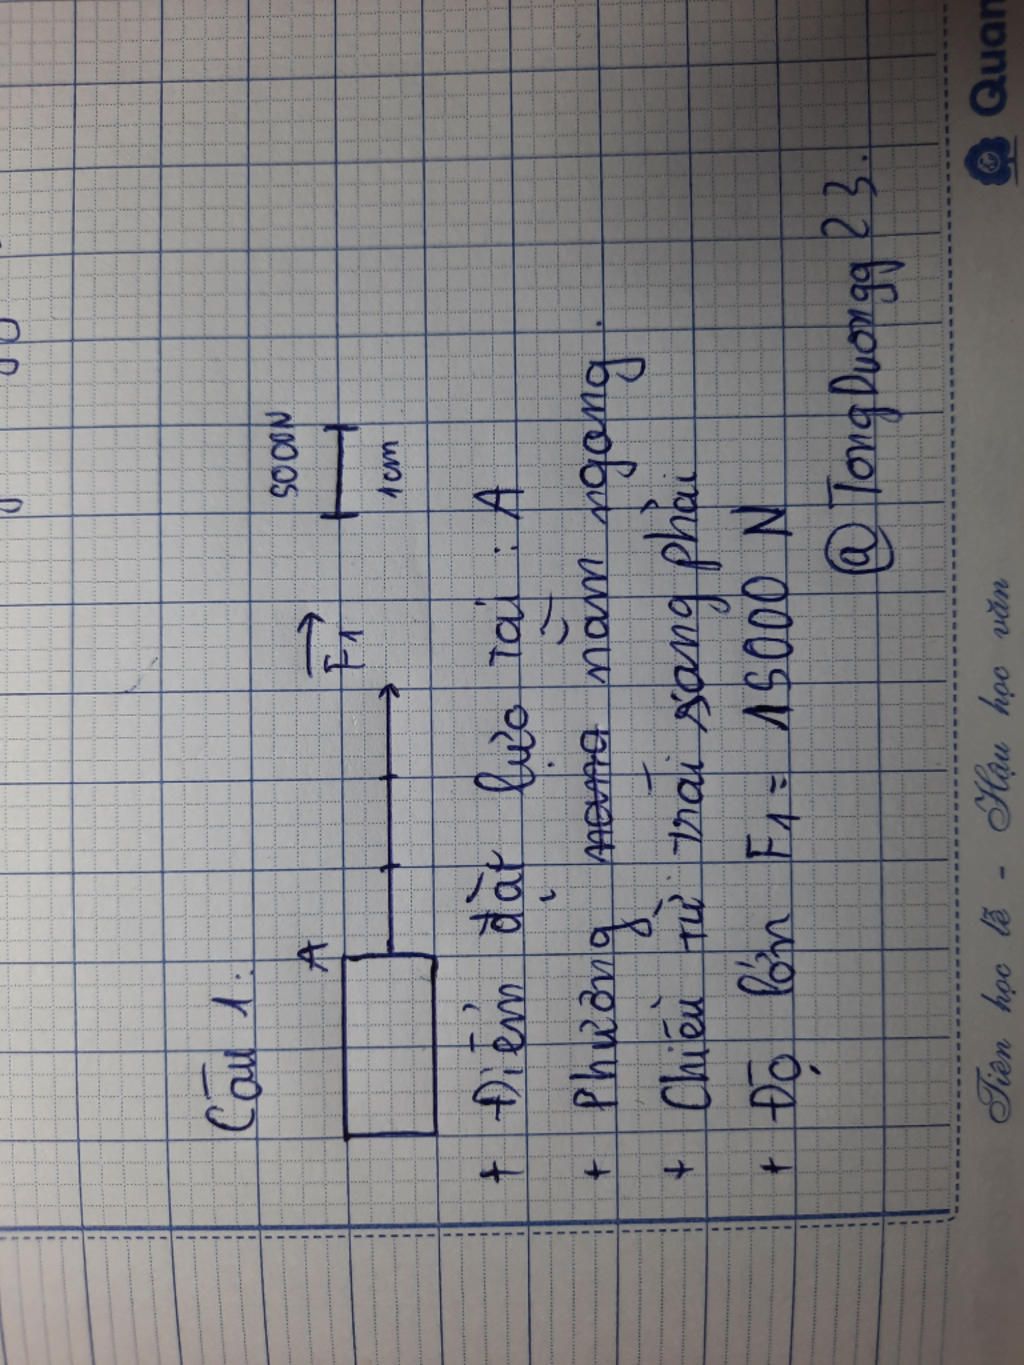 Câu 1:
A
F1
5000N
1cm
+ Điểm đặt lực tại : A
+ Phương nằm ngang.
+ Chiều từ trái sang phải
+ Độ lớn F1 = 15000 N
@TongDuongg 23.
Tiên học lễ - Hậu học văn